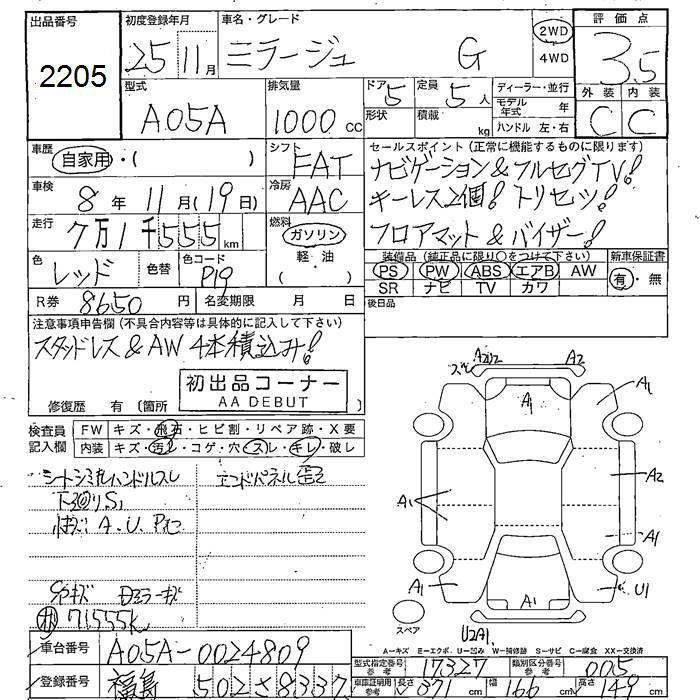 出品番号
2205
初度登録年月
25 11月
車名・グレード
ミラージュ G
2WD
4WD
評価点
3.5
外装 内装
C C
型式
A05A
排気量
1000 cc
ドア
5
形状
定員
5人
積載
kg
ディーラー・並行
モデル年式 年
ハンドル 左・右
車歴
自家用・( )
シフト
FAT
セールスポイント(正常に機能するものに限ります)
ナビゲーション&フルセグTV!
キーレス2個! トリセツ!
フロアマット&バイザー!
車検
8年 11月(19日)
冷房
AAC
走行
7万1千555km
燃料
ガソリン
軽・油
( )
色
レッド
色替
色コード
P19
装備品(純正品に限り○をつけて下さい)
PS PW ABS エアB AW
SR ナビ TV カワ
新車保証書
有・無
R券 8650円
名変期限 月 日
後日品
注意事項申告欄(不具合内容等は具体的に記入して下さい)
スタッドレス&AW 4本積込み!
初出品コーナー
AA DEBUT
修復歴 有 〔箇所 〕
検査員
記入欄
FW キズ・飛石・ヒビ割・リペア跡・X要
内装 キズ・汚れ・コゲ・穴・スレ・キレ・破レ
シートシミ ハンドルスレ
エンドパネル歪
下回りS1
A.U.
Dミラーキズ
71555k
A2
A1
A1
A1
A2
A1
A1
A1
U1
U2A1
スペア
A-キズ E-エクボ U-凹み W-補修跡 S-サビ C-腐食 XX-交換済
車台番号
A05A-0024809
登録番号
福島 502 さ 8337
型式指定番号
参考
17327
類別区分番号
参考
005
車庫証明用
参考
長さ 371 cm 幅 166 cm 高さ 149 cm